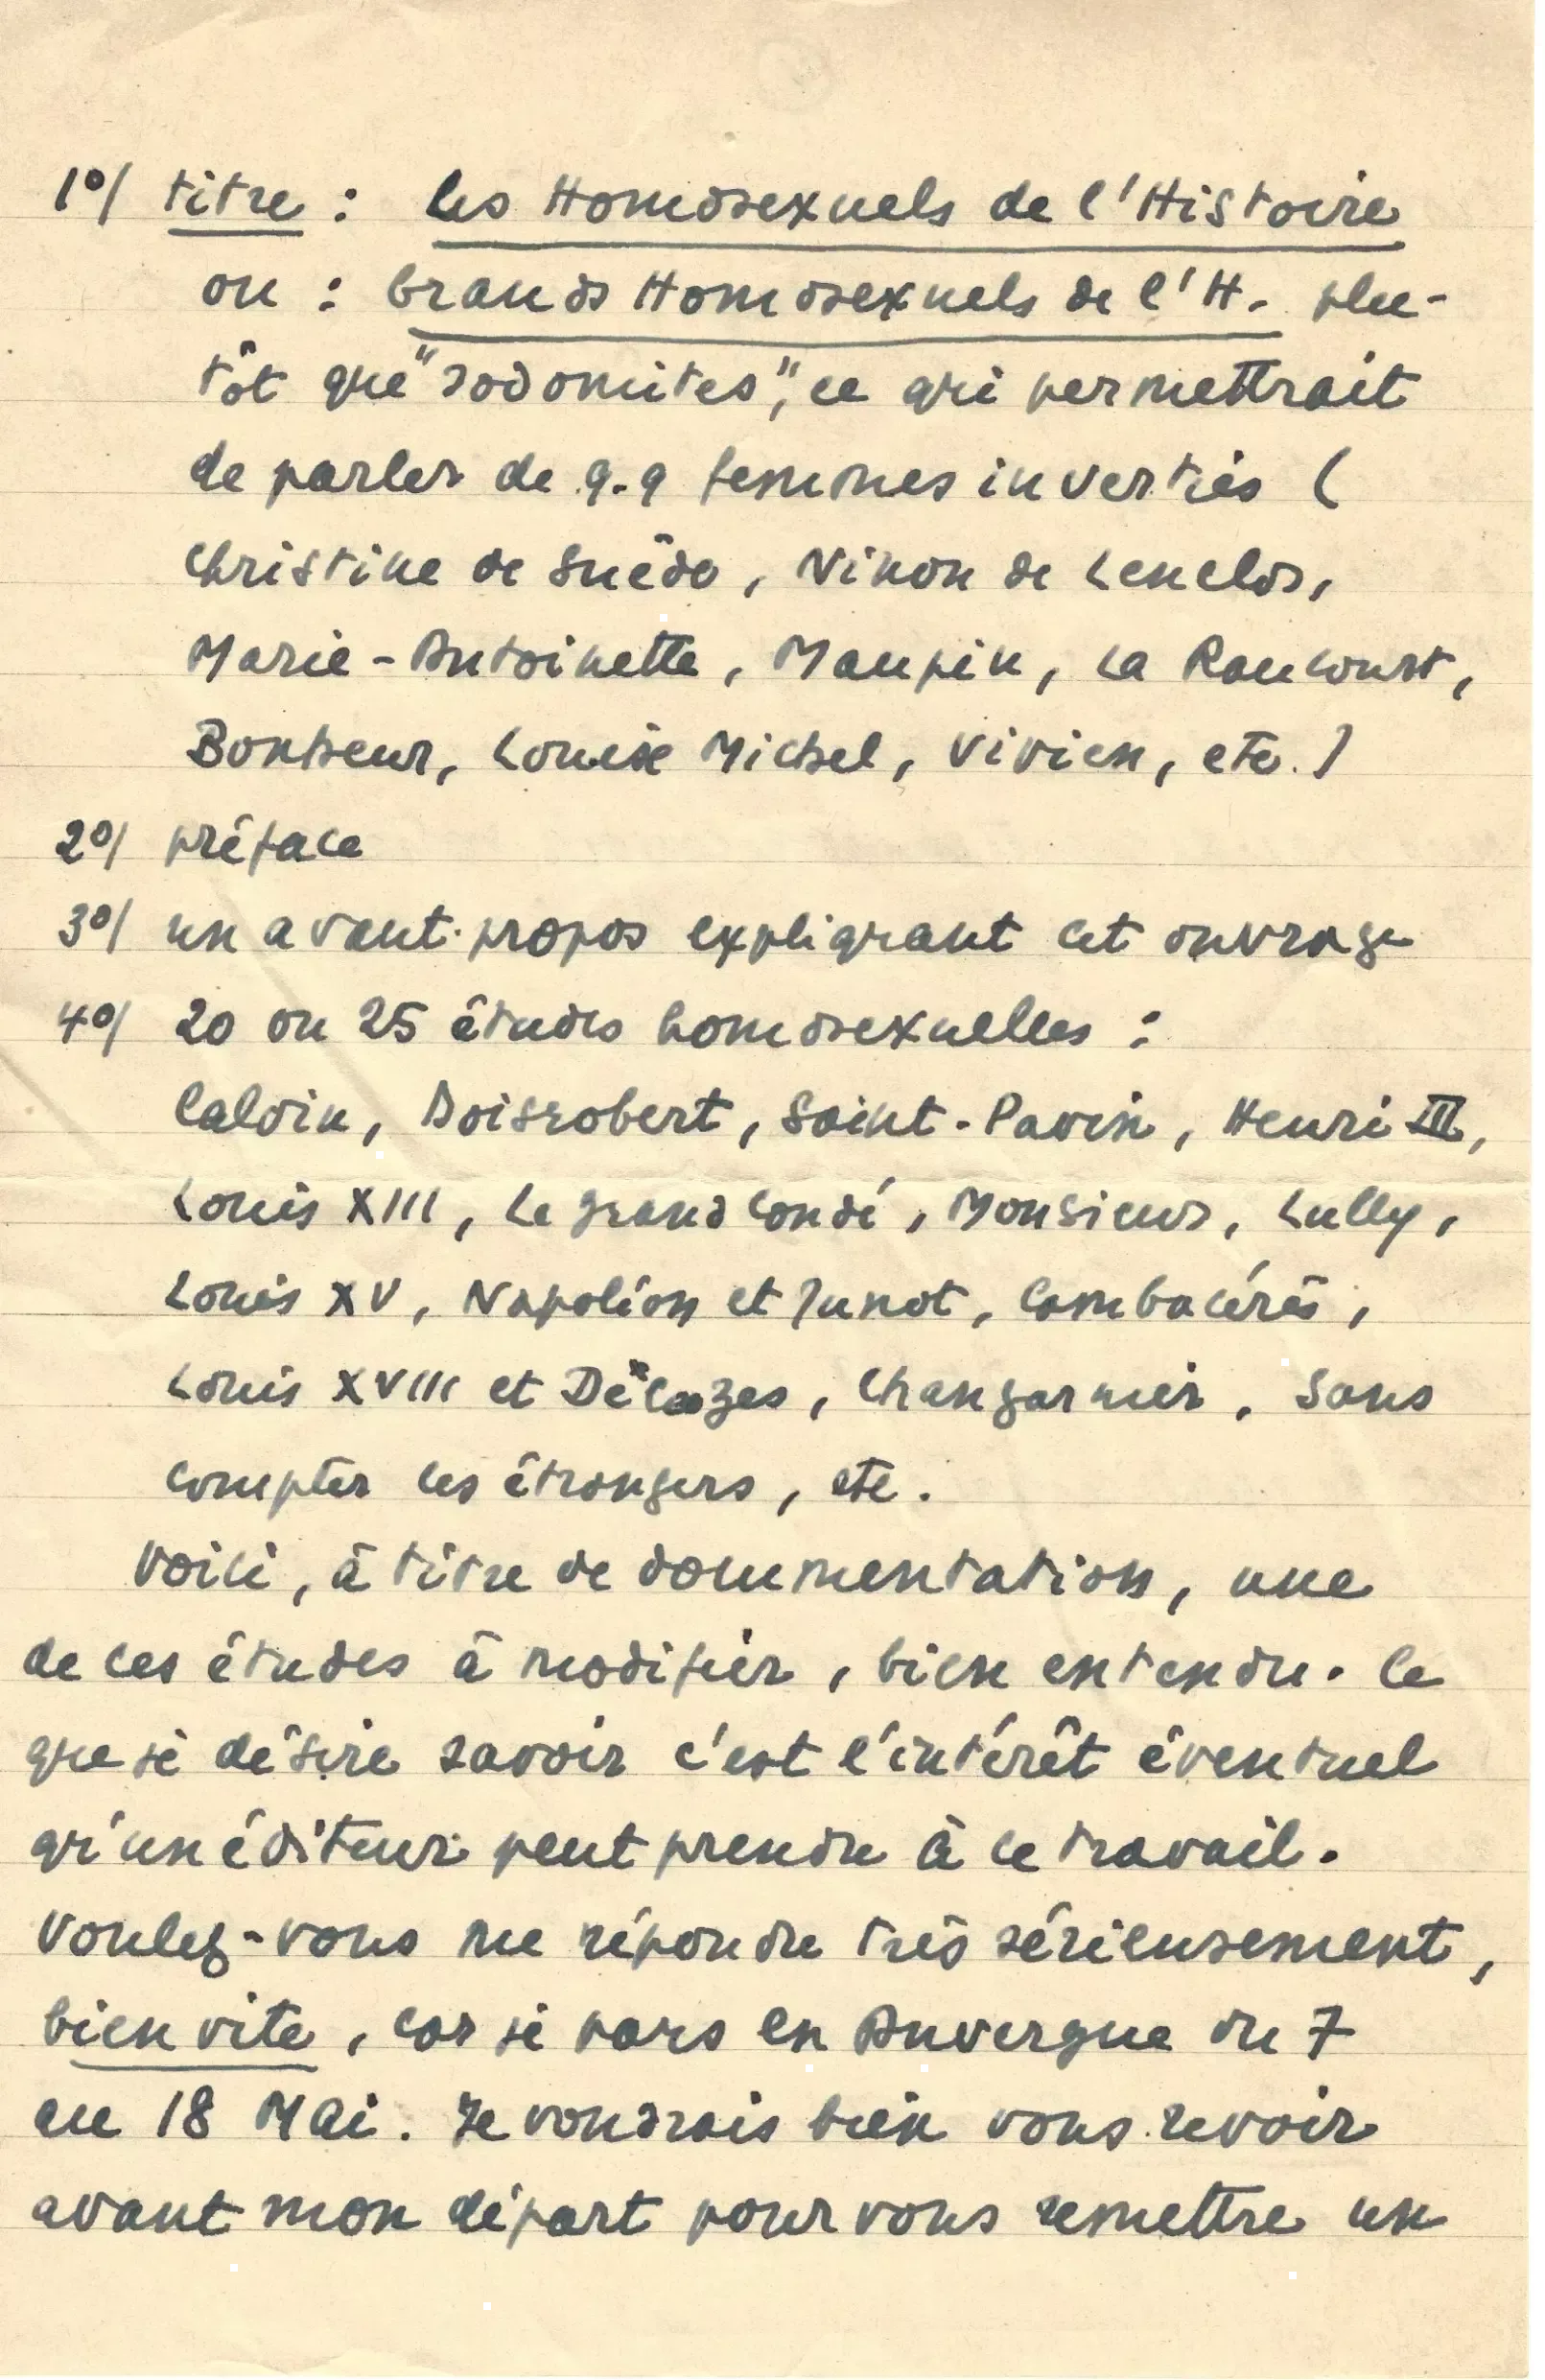 1°/ titre : Les Homosexuels de l'Histoire
ou : Grands Homosexuels de l'H. plu-
tôt que "sodomites", ce qui permettrait
de parler de q.q femmes inverties (
Christine de Suède, Ninon de Lenclos,
Marie-Antoinette, Maupin, La Raucourt,
Bonheur, Louise Michel, Vivien, etc.)
2°/ préface
3°/ un avant-propos expliquant cet ouvrage
4°/ 20 ou 25 études homosexuelles :
Calvin, Boisrobert, Saint-Pavin, Henri III,
Louis XIII, Le grand Condé, Monsieur, Lully,
Louis XV, Napoléon et Junot, Cambacérès,
Louis XVIII et Décazes, Changarnier, sans
compter les étrangers, etc.
Voici, à titre de documentation, une
de ces études à modifier, bien entendu. Ce
que je désire savoir c'est l'intérêt éventuel
qu'un éditeur peut prendre à ce travail.
Voulez-vous me répondre très sérieusement,
bien vite, car je pars en Auvergne du 7
au 18 Mai. Je voudrais bien vous revoir
avant mon départ pour vous remettre un